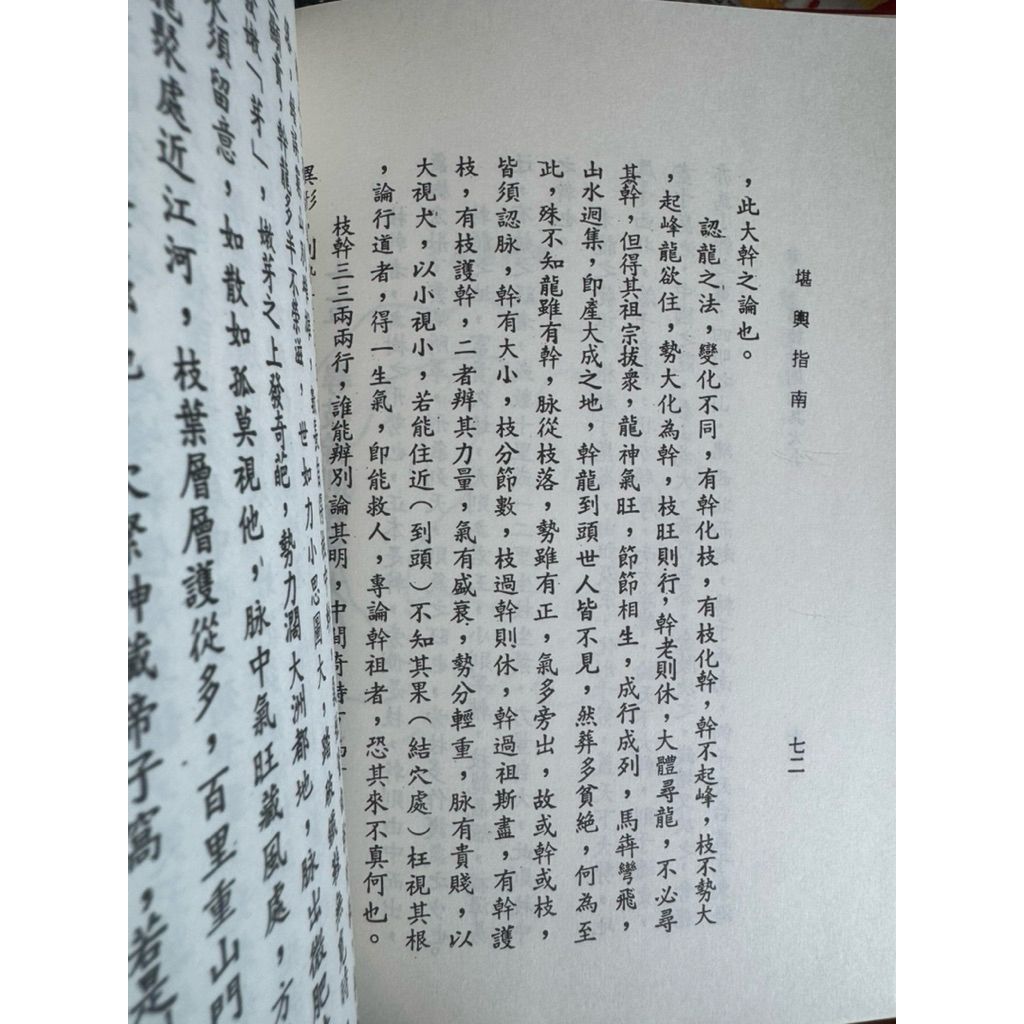 堪輿指南
七二
，此大幹之論也。
認龍之法，變化不同，有幹化枝，有枝化幹，幹不起峰，枝不勢大
，起峰龍欲住，勢大化為幹，枝旺則行，幹老則休，大體尋龍，不必尋
其幹，但得其祖宗拔衆，龍神氣旺，節節相生，成行成列，馬犇彎飛，
山水迴集，即產大成之地，幹龍到頭世人皆不見，然葬多貧絕，何為至
此，殊不知龍雖有幹，脉從枝落，勢雖有正，氣多旁出，故或幹或枝，
皆須認脉，幹有大小，枝分節數，枝過幹則休，幹過祖斯盡，有幹護
枝，有枝護幹，二者辨其力量，氣有盛衰，勢分輕重，脉有貴賤，以
大視犬，以小視小，若能住近（到頭）不知其果（結穴處）枉視其根
，論行道者，得一生氣，即能救人，專論幹祖者，恐其來不真何也。
枝幹三三兩兩行，誰能辨別論其明，中間奇特
異形
幹龍多半不榮滋，世如力小思圖大，
墩「芽」，墩芽之上發奇葩，勢力濶大洲都地，脉出微肥
須留意，如散如孤莫視他，脉中氣旺藏風處，方
龍聚處近江河，枝葉層層護從多，百里重山門
神藏帝子窩，若是